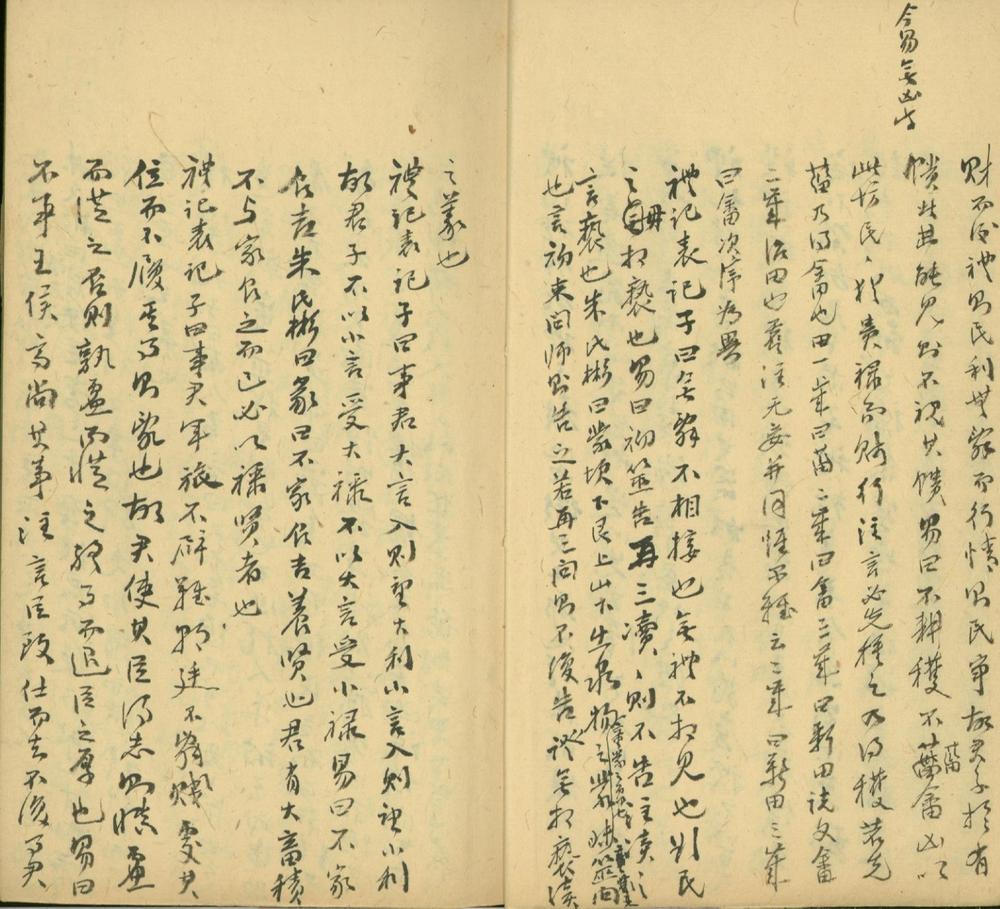 今易無凶字
財而後禮則民利無辭而行情則民爭故君子於有
饋者弗能見則不視其饋易曰不耕穫不菑畬凶以
此坊民民猶貴祿而賤行注言必先種之乃得穫若先
菑乃得畬也田一歲曰菑二歲曰畬三歲曰新田說文畬
二歲治田也 注无妄并同惟 云二歲曰新田三歲
曰畬次序為異
禮記表記子曰無辭不相接也無禮不相見也則民
之毋相褻也易曰初筮告再三瀆瀆則不告注瀆之
言褻也朱氏彬曰蒙坎下艮上山下出泉物之蒙 筮問
也言初來問師則告之若再三問則不復告 無相褻瀆
之義也
禮記表記子曰事君大言入則望大利小言入則望小利
故君子不以小言受大祿不以大言受小祿易曰不家
食吉朱氏彬曰彖曰不家食吉養賢也君有大畜積
不與家食之而已必以祿賢者也
禮記表記子曰事君軍旅不辟難朝廷不辭賤處其
位而不履其事則亂也故君使其臣得志則慎慮
而從之否則孰慮而從之終事而退臣之厚也易曰
不事王侯高尚其事注言臣致仕而去不復事君